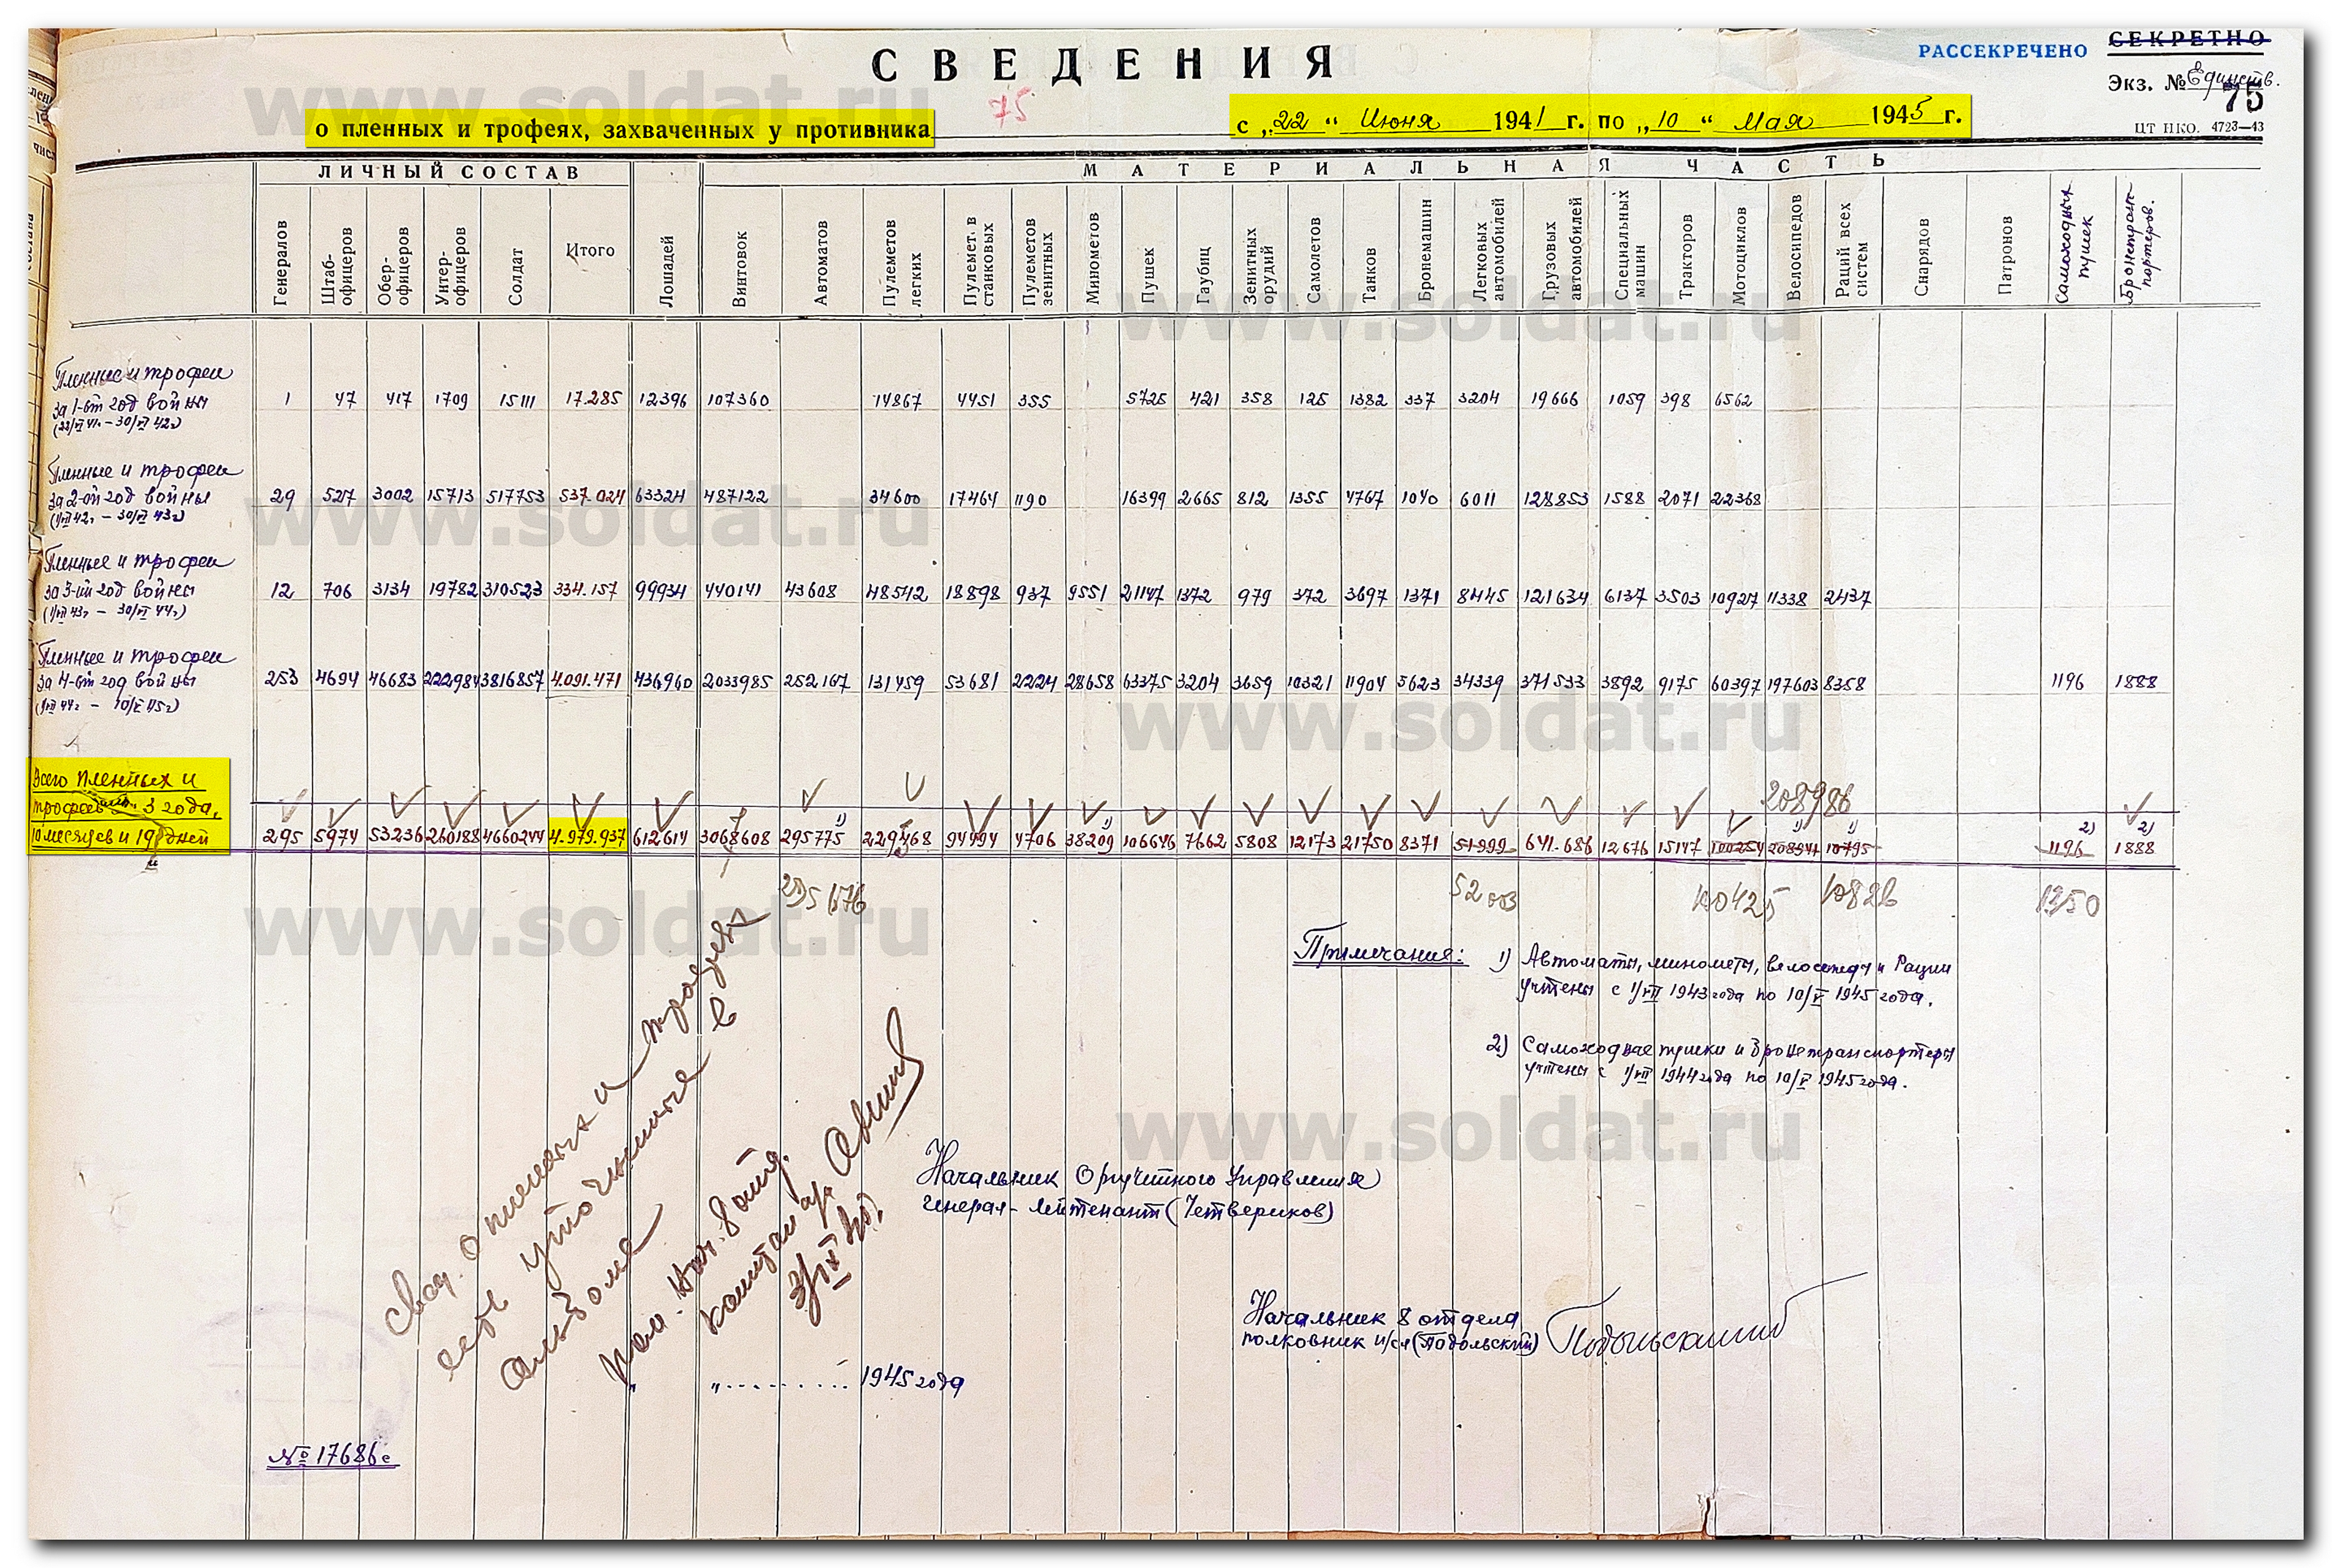 СВЕДЕНИЯ
РАССЕКРЕЧЕНО
СЕКРЕТНО
Экз. № Единств.
75
75
о пленных и трофеях, захваченных у противника
с „22“ Июня 1941 г. по „10“ Мая 1945 г.
ЦТ НКО. 4723—43
ЛИЧНЫЙ СОСТАВ
МАТЕРИАЛЬНАЯ ЧАСТЬ
Генералов Штаб-офицеров Обер-офицеров Унтер-офицеров Солдат Итого Лошадей Винтовок Автоматов Пулеметов легких Пулемет. в станковых Пулеметов зенитных Минометов Пушек Гаубиц Зенитных орудий Самолетов Танков Бронемашин Легковых автомобилей Грузовых автомобилей Специальных машин Тракторов Мотоциклов Велосипедов Раций всех систем Снарядов Патронов Самоходных пушек Бронетранспортеров.
Пленные и трофеи
за 1-ый год войны
(22/VI 41г. – 30/VI 42г)
1 47 417 1709 15111 17.285 12396 107360 14867 4451 355 5725 421 358 125 1382 337 3204 19666 1059 398 6562
Пленные и трофеи
за 2-ой год войны
(1/VII 42г – 30/VI 43г)
29 527 3002 15713 517753 537.024 63324 487122 34600 17464 1190 16399 2665 812 1355 4767 1040 6011 128853 1588 2071 22368
Пленные и трофеи
за 3-ий год войны
(1/VII 43г – 30/VI 44г)
12 706 3134 19782 310523 334.157 99934 440141 43608 48542 18898 937 9551 21147 1372 979 372 3697 1371 8445 121634 6137 3503 10927 11338 2437
Пленные и трофеи
за 4-ый год войны
(1/VII 44г – 10/V 45г)
253 4694 46683 222984 3816857 4.091.471 436960 2033985 252167 131459 53681 2224 28658 63375 3204 3659 10321 11904 5623 34339 371533 3892 9175 60397 197603 8358 1196 1888
Всего пленных и
трофеев 3 года,
10 месяцев и 19 дней
208986
295 5974 53236 260188 4660244 4.979.937 612614 3068608 295775 1) 229468 94494 4706 38209 1) 106646 7662 5808 12173 21750 8371 51999 641.686 12676 15147 100254 208941 1) 10795 1) 1196 2) 1888 2)
295676 52003 100425 10826 1350
Примечания: 1) Автоматы, минометы, велосипеды и Рации
учтены с 1/VII 1943 года по 10/V 1945 года.
2) Самоходные пушки и бронетранспортеры
учтены с 1/VII 1944 года по 10/V 1945 года.
Свед. о пленных и трофеях
есть уточненные в
альбоме
пом. нач. 8 отд.
капитан а/с
3/IX
Начальник Оргучетного Управления
Генерал-лейтенант (Четвериков)
Начальник 8 отдела
полковник и/сл (Подольский) Подольский
„......... 1945 года
№ 17686с
www.soldat.ru
www.soldat.ru
www.soldat.ru
www.soldat.ru
www.soldat.ru
www.soldat.ru